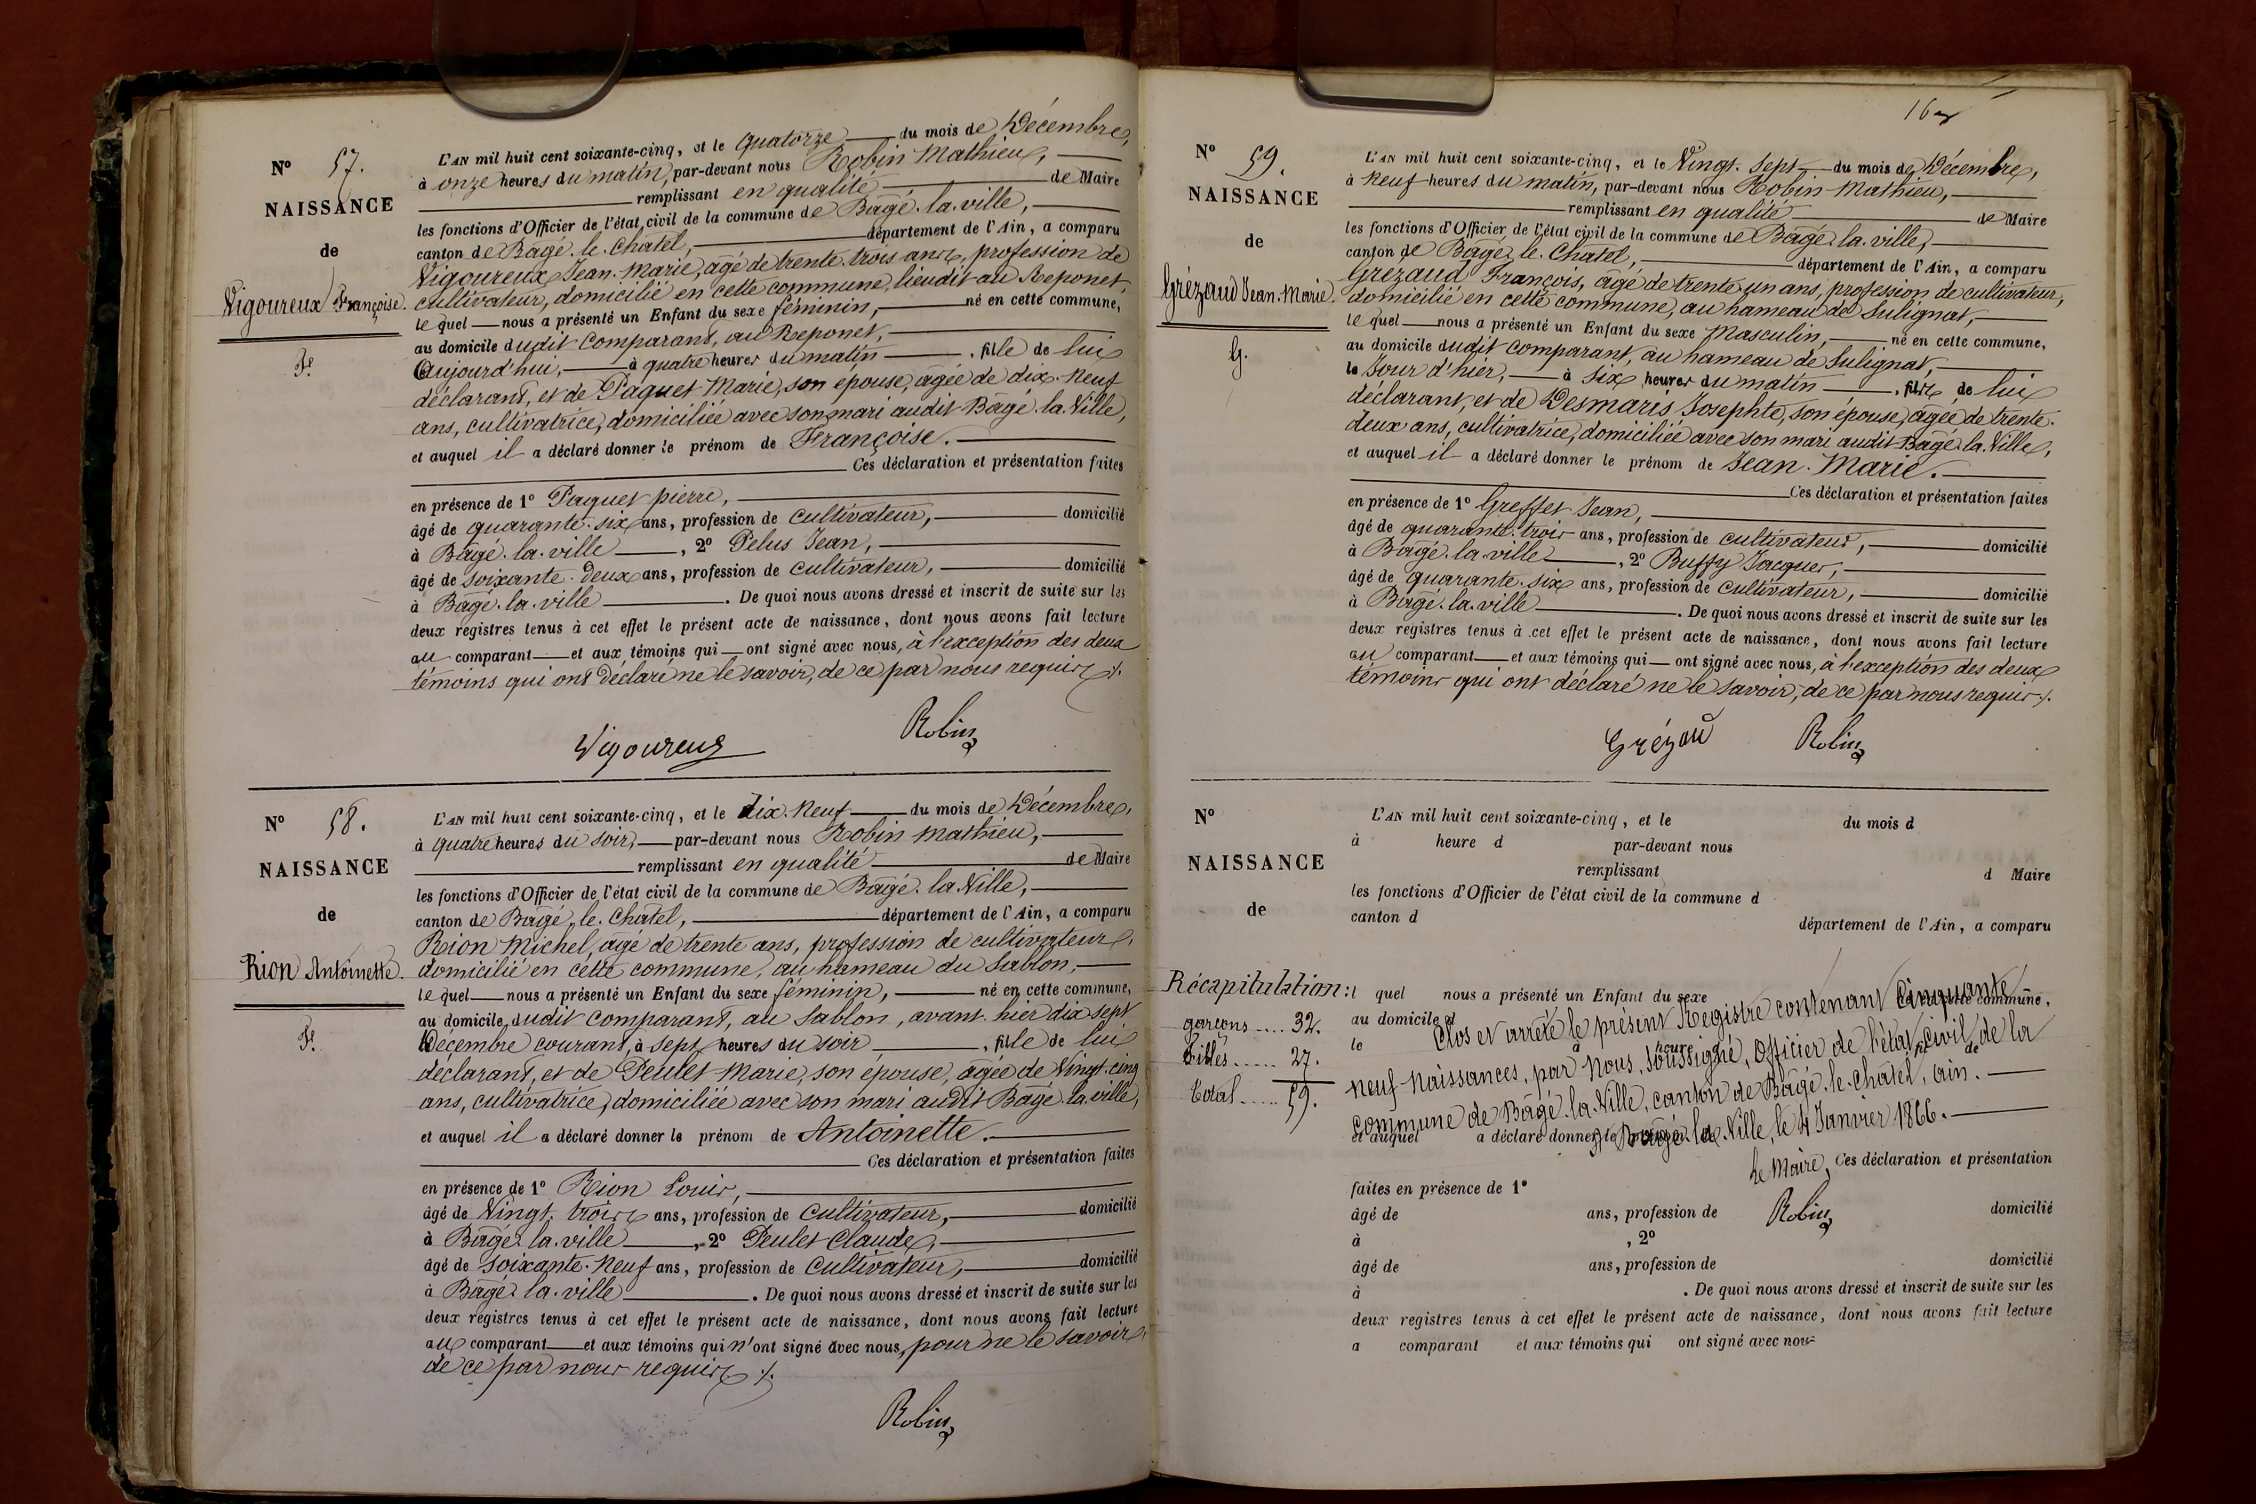 N° 57.
NAISSANCE
de
Vigoureux Françoise.
F.
L'AN mil huit cent soixante-cinq, et le quatorze du mois de Décembre,
à onze heures du matin, par-devant nous Robin Mathieu,
remplissant en qualité de Maire
les fonctions d'Officier de l'état civil de la commune de Bâgé-la-ville,
canton de Bâgé-le-Châtel, département de l'Ain, a comparu
Vigoureux Jean-Marie, âgé de trente-trois ans, profession de
cultivateur, domicilié en cette commune, lieudit au Reponet,
le quel nous a présenté un Enfant du sexe féminin, né en cette commune,
au domicile dudit comparant, au Reponet,
Aujourd'hui, à quatre heures du matin, fille de lui
déclarant, et de Paquet Marie, son épouse, âgée de dix-neuf
ans, cultivatrice, domiciliée avec son mari audit Bâgé-la-Ville,
et auquel il a déclaré donner le prénom de Françoise.
Ces déclaration et présentation faites
en présence de 1° Paquet pierre,
âgé de quarante-six ans, profession de cultivateur, domicilié
à Bâgé-la-ville, 2° Pelus Jean,
âgé de soixante-deux ans, profession de cultivateur, domicilié
à Bâgé-la-ville. De quoi nous avons dressé et inscrit de suite sur les
deux registres tenus à cet effet le présent acte de naissance, dont nous avons fait lecture
au comparant et aux témoins qui ont signé avec nous, à l'exception des deux
témoins qui ont déclaré ne le savoir, de ce par nous requis ./.
Vigoureux Robin
N° 58.
NAISSANCE
de
Rion Antoinette.
F.
L'AN mil huit cent soixante-cinq, et le dix-neuf du mois de Décembre,
à quatre heures du soir, par-devant nous Robin Mathieu,
remplissant en qualité de Maire
les fonctions d'Officier de l'état civil de la commune de Bâgé-la-Ville,
canton de Bâgé-le-Châtel, département de l'Ain, a comparu
Rion Michel, âgé de trente ans, profession de cultivateur,
domicilié en cette commune, au hameau du Sablon,
le quel nous a présenté un Enfant du sexe féminin, né en cette commune,
au domicile dudit comparant, au Sablon, avant-hier dix-sept
Décembre courant, à sept heures du soir, fille de lui
déclarant, et de Peulet Marie, son épouse, âgée de Vingt-cinq
ans, cultivatrice, domiciliée avec son mari audit Bâgé-la-ville,
et auquel il a déclaré donner le prénom de Antoinette.
Ces déclaration et présentation faites
en présence de 1° Rion Louis,
âgé de Vingt-trois ans, profession de cultivateur, domicilié
à Bâgé-la-ville, 2° Peulet Claude,
âgé de soixante-neuf ans, profession de cultivateur, domicilié
à Bâgé-la-ville. De quoi nous avons dressé et inscrit de suite sur les
deux registres tenus à cet effet le présent acte de naissance, dont nous avons fait lecture
au comparant et aux témoins qui n'ont signé avec nous, pour ne le savoir,
de ce par nous requis ./.
Robin
16
N° 59.
NAISSANCE
de
Grézaud Jean-Marie.
G.
L'AN mil huit cent soixante-cinq, et le Vingt-sept du mois de Décembre,
à Neuf heures du matin, par-devant nous Robin Mathieu,
remplissant en qualité de Maire
les fonctions d'Officier de l'état civil de la commune de Bâgé-la-ville,
canton de Bâgé-le-Châtel, département de l'Ain, a comparu
Grézaud François, âgé de trente-un ans, profession de cultivateur,
domicilié en cette commune, au hameau de Sulignat,
le quel nous a présenté un Enfant du sexe Masculin, né en cette commune,
au domicile dudit comparant, au hameau de Sulignat,
le Jour d'hier, à six heures du matin, fils de lui
déclarant, et de Desmaris Josephte, son épouse, âgée de trente-
deux ans, cultivatrice, domiciliée avec son mari audit Bâgé-la-Ville,
et auquel il a déclaré donner le prénom de Jean-Marie.
Ces déclaration et présentation faites
en présence de 1° Greffet Jean,
âgé de quarante-trois ans, profession de cultivateur, domicilié
à Bâgé-la-ville, 2° Buffy Jacques,
âgé de quarante-six ans, profession de cultivateur, domicilié
à Bâgé-la-ville. De quoi nous avons dressé et inscrit de suite sur les
deux registres tenus à cet effet le présent acte de naissance, dont nous avons fait lecture
au comparant et aux témoins qui ont signé avec nous, à l'exception des deux
témoins qui ont déclaré ne le savoir, de ce par nous requis ./.
Grézau Robin
N°
NAISSANCE
de
L'AN mil huit cent soixante-cinq, et le du mois d
à heure d par-devant nous
remplissant d Maire
les fonctions d'Officier de l'état civil de la commune d
canton d
département de l'Ain, a comparu
Récapitulation:
garçons .... 32.
Filles ..... 27.
Total ..... 59.
l quel nous a présenté un Enfant du sexe né en cette commune,
au domicile d
Clos et arrêté le présent Registre contenant Cinquante
le à heure d fil de
neuf Naissances, par Nous, soussigné, Officier de l'état civil de la
commune de Bâgé-la-Ville, canton de Bâgé-le-Châtel, Ain.
et auquel a déclaré donner le prénom de
A Bâgé-la-Ville, le 4 Janvier 1866.
Le Maire,
Ces déclaration et présentation
faites en présence de 1°
âgé de ans, profession de domicilié
Robin
à , 2°
âgé de ans, profession de domicilié
à . De quoi nous avons dressé et inscrit de suite sur les
deux registres tenus à cet effet le présent acte de naissance, dont nous avons fait lecture
a comparant et aux témoins qui ont signé avec nous